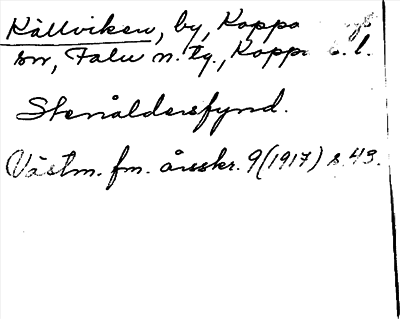 Källviken, by, Koppa
sn, Falu n. tg., Kopp. l.
Stenåldersfynd.
Västm. fm. årsskr. 9 (1917) s. 43.